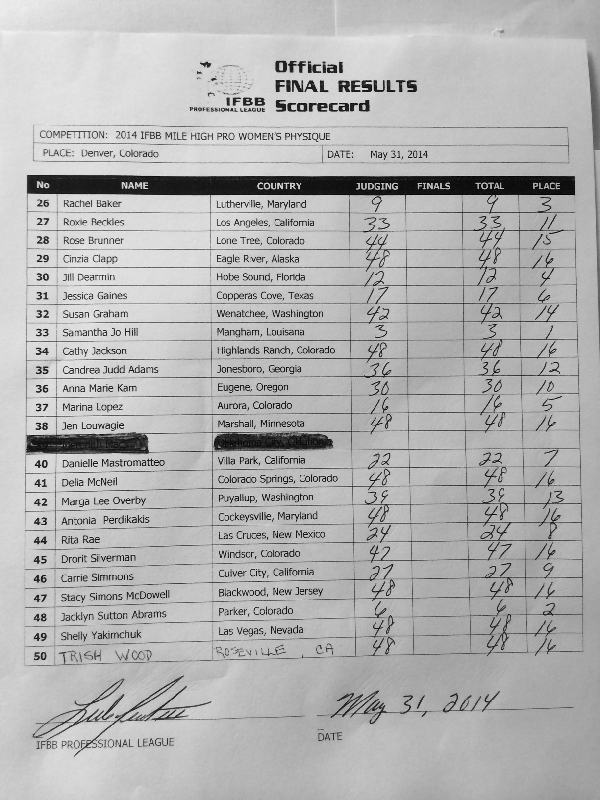 Official
FINAL RESULTS
Scorecard
IFBB
PROFESSIONAL LEAGUE
COMPETITION: 2014 IFBB MILE HIGH PRO WOMEN'S PHYSIQUE
PLACE: Denver, Colorado DATE: May 31, 2014
No NAME COUNTRY JUDGING FINALS TOTAL PLACE
26 Rachel Baker Lutherville, Maryland 9 9 3
27 Roxie Beckles Los Angeles, California 33 33 11
28 Rose Brunner Lone Tree, Colorado 44 44 15
29 Cinzia Clapp Eagle River, Alaska 48 48 16
30 Jill Dearmin Hobe Sound, Florida 12 12 4
31 Jessica Gaines Copperas Cove, Texas 17 17 6
32 Susan Graham Wenatchee, Washington 42 42 14
33 Samantha Jo Hill Mangham, Louisana 3 3 1
34 Cathy Jackson Highlands Ranch, Colorado 48 48 16
35 Candrea Judd Adams Jonesboro, Georgia 36 36 12
36 Anna Marie Kam Eugene, Oregon 30 30 10
37 Marina Lopez Aurora, Colorado 16 16 5
38 Jen Louwagie Marshall, Minnesota 48 48 16
40 Danielle Mastromatteo Villa Park, California 22 22 7
41 Delia McNeil Colorado Springs, Colorado 48 48 16
42 Marga Lee Overby Puyallup, Washington 39 39 13
43 Antonia Perdikakis Cockeysville, Maryland 48 48 16
44 Rita Rae Las Cruces, New Mexico 24 24 8
45 Drorit Silverman Windsor, Colorado 47 47 16
46 Carrie Simmons Culver City, California 27 27 9
47 Stacy Simons McDowell Blackwood, New Jersey 48 48 16
48 Jacklyn Sutton Abrams Parker, Colorado 6 6 2
49 Shelly Yakimchuk Las Vegas, Nevada 48 48 16
50 TRISH WOOD ROSEVILLE, CA 48 48 16
May 31, 2014
IFBB PROFESSIONAL LEAGUE DATE